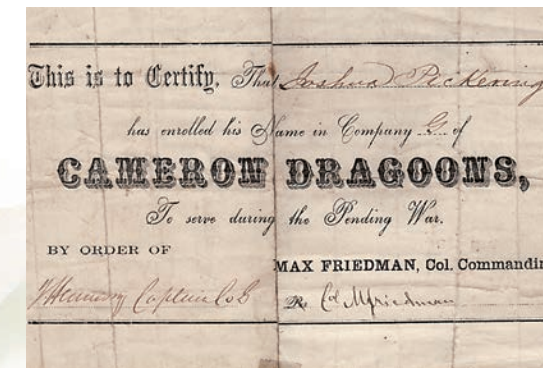 This is to Certify, That Joshua Pickering
has enrolled his Name in Company G of
CAMERON DRAGOONS,
To serve during the Pending War.
BY ORDER OF
MAX FRIEDMAN, Col. Commandin
Captain Co G
Col MFriedman